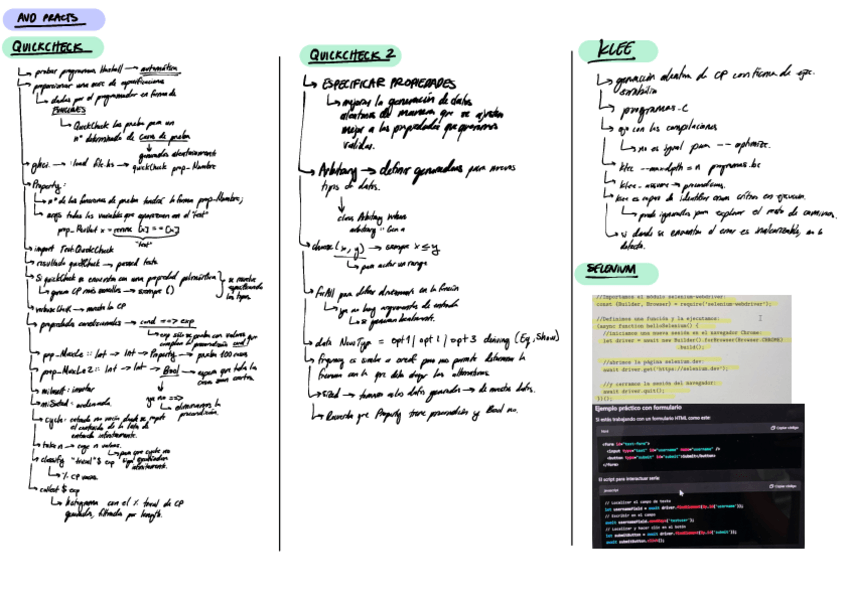 AVD PRACTS
QUICKCHECK
probar programas Haskell → automática
proporcionar una serie de especificaciones
dadas por el programador en forma de
FUNCIONES
QuickCheck las prueba para un
nº determinado de casos de prueba
generados aleatoriamente
ghci → :load file.hs → quickCheck prop_Nombre
Property:
nº de las funciones de prueba tendrá la forma prop_Nombre;
args: todas las variables que aparecen en el "test"
prop_RevUnit x = reverse [x] == [x]
"test"
import Test.QuickCheck
resultado quickCheck → passed tests
Si quickCheck se encuentra con una propiedad polimórfica
genera CP más sencillos → siempre ()
se resuelve especificando los tipos.
verboseCheck → muestra los CP
propiedades condicionales → cond ==> exp
exp sólo se prueba con valores que
cumplen la precondición cond
prop_MaxLe :: Int → Int → Property → prueba 100 casos
prop_MaxLe2 :: Int → Int → Bool → espera que todos los
casos sean ciertos.
ya no ==>
eliminamos la
precondición.
miInsert: insertar
miSorted: ordenada
cycle:
take n → coge n valores.
classify "trivial" $ exp
% CP
collect $ exp
histograma con el % total de CP
generados, filtrado por length.
QUICKCHECK 2
ESPECIFICAR PROPIEDADES
mejorar la generación de datos
aleatorios de manera que se ajusten
mejor a las propiedades que queremos
validar.
Arbitrary → definir generadores para nuevos
tipos de datos.
class Arbitrary where
arbitrary :: Gen a
choose (x, y) → siempre x ≤ y
para acotar un rango
forAll para definir directamente en la función
ya no hay argumentos de entrada
se generan localmente.
data NewType = opt1 | opt2 | opt3 deriving (Eq, Show)
frequency es similar a oneof pero nos permite determinar la
frecuencia con la que debe elegir las alternativas
sized → tamaño a los datos generados → de nuestros datos.
Recuerda que Property tiene precondición y Bool no.
KLEE
generación aleatoria de CP con forma de ejec.
simbólica
programas.c
ojo con las compilaciones
no es igual para --optimize.
klee --max-depth=n programas.bc
klee_assume → precondiciones.
klee es capaz de identificar errores críticos en ejecución.
puede ignorarlos para explorar el resto de caminos.
si donde se encuentra el error es inalcanzable, no lo
detecta.
SELENIUM
//Importamos el módulo selenium-webdriver:
const {Builder, Browser} = require('selenium-webdriver');
//Definimos una función y la ejecutamos:
(async function helloSelenium() {
//iniciamos una nueva sesión en el navegador Chrome:
let driver = await new Builder().forBrowser(Browser.CHROME)
.build();
//abrimos la página selenium.dev:
await driver.get('https://selenium.dev');
//y cerramos la sesión del navegador:
await driver.quit();
})();
Ejemplo práctico con formulario
Si estás trabajando con un formulario HTML como este:
html
Copiar código
<form id="test-form">
<input type="text" id="username" name="username" />
<button type="submit" id="submit">Submit</button>
</form>
El script para interactuar sería:
javascript
Copiar código
// Localizar el campo de texto
let usernameField = await driver.findElement(By.id('username'));
// Escribir en el campo
await usernameField.sendKeys('testuser');
// Localizar y hacer clic en el botón
let submitButton = await driver.findElement(By.id('submit'));
await submitButton.click();